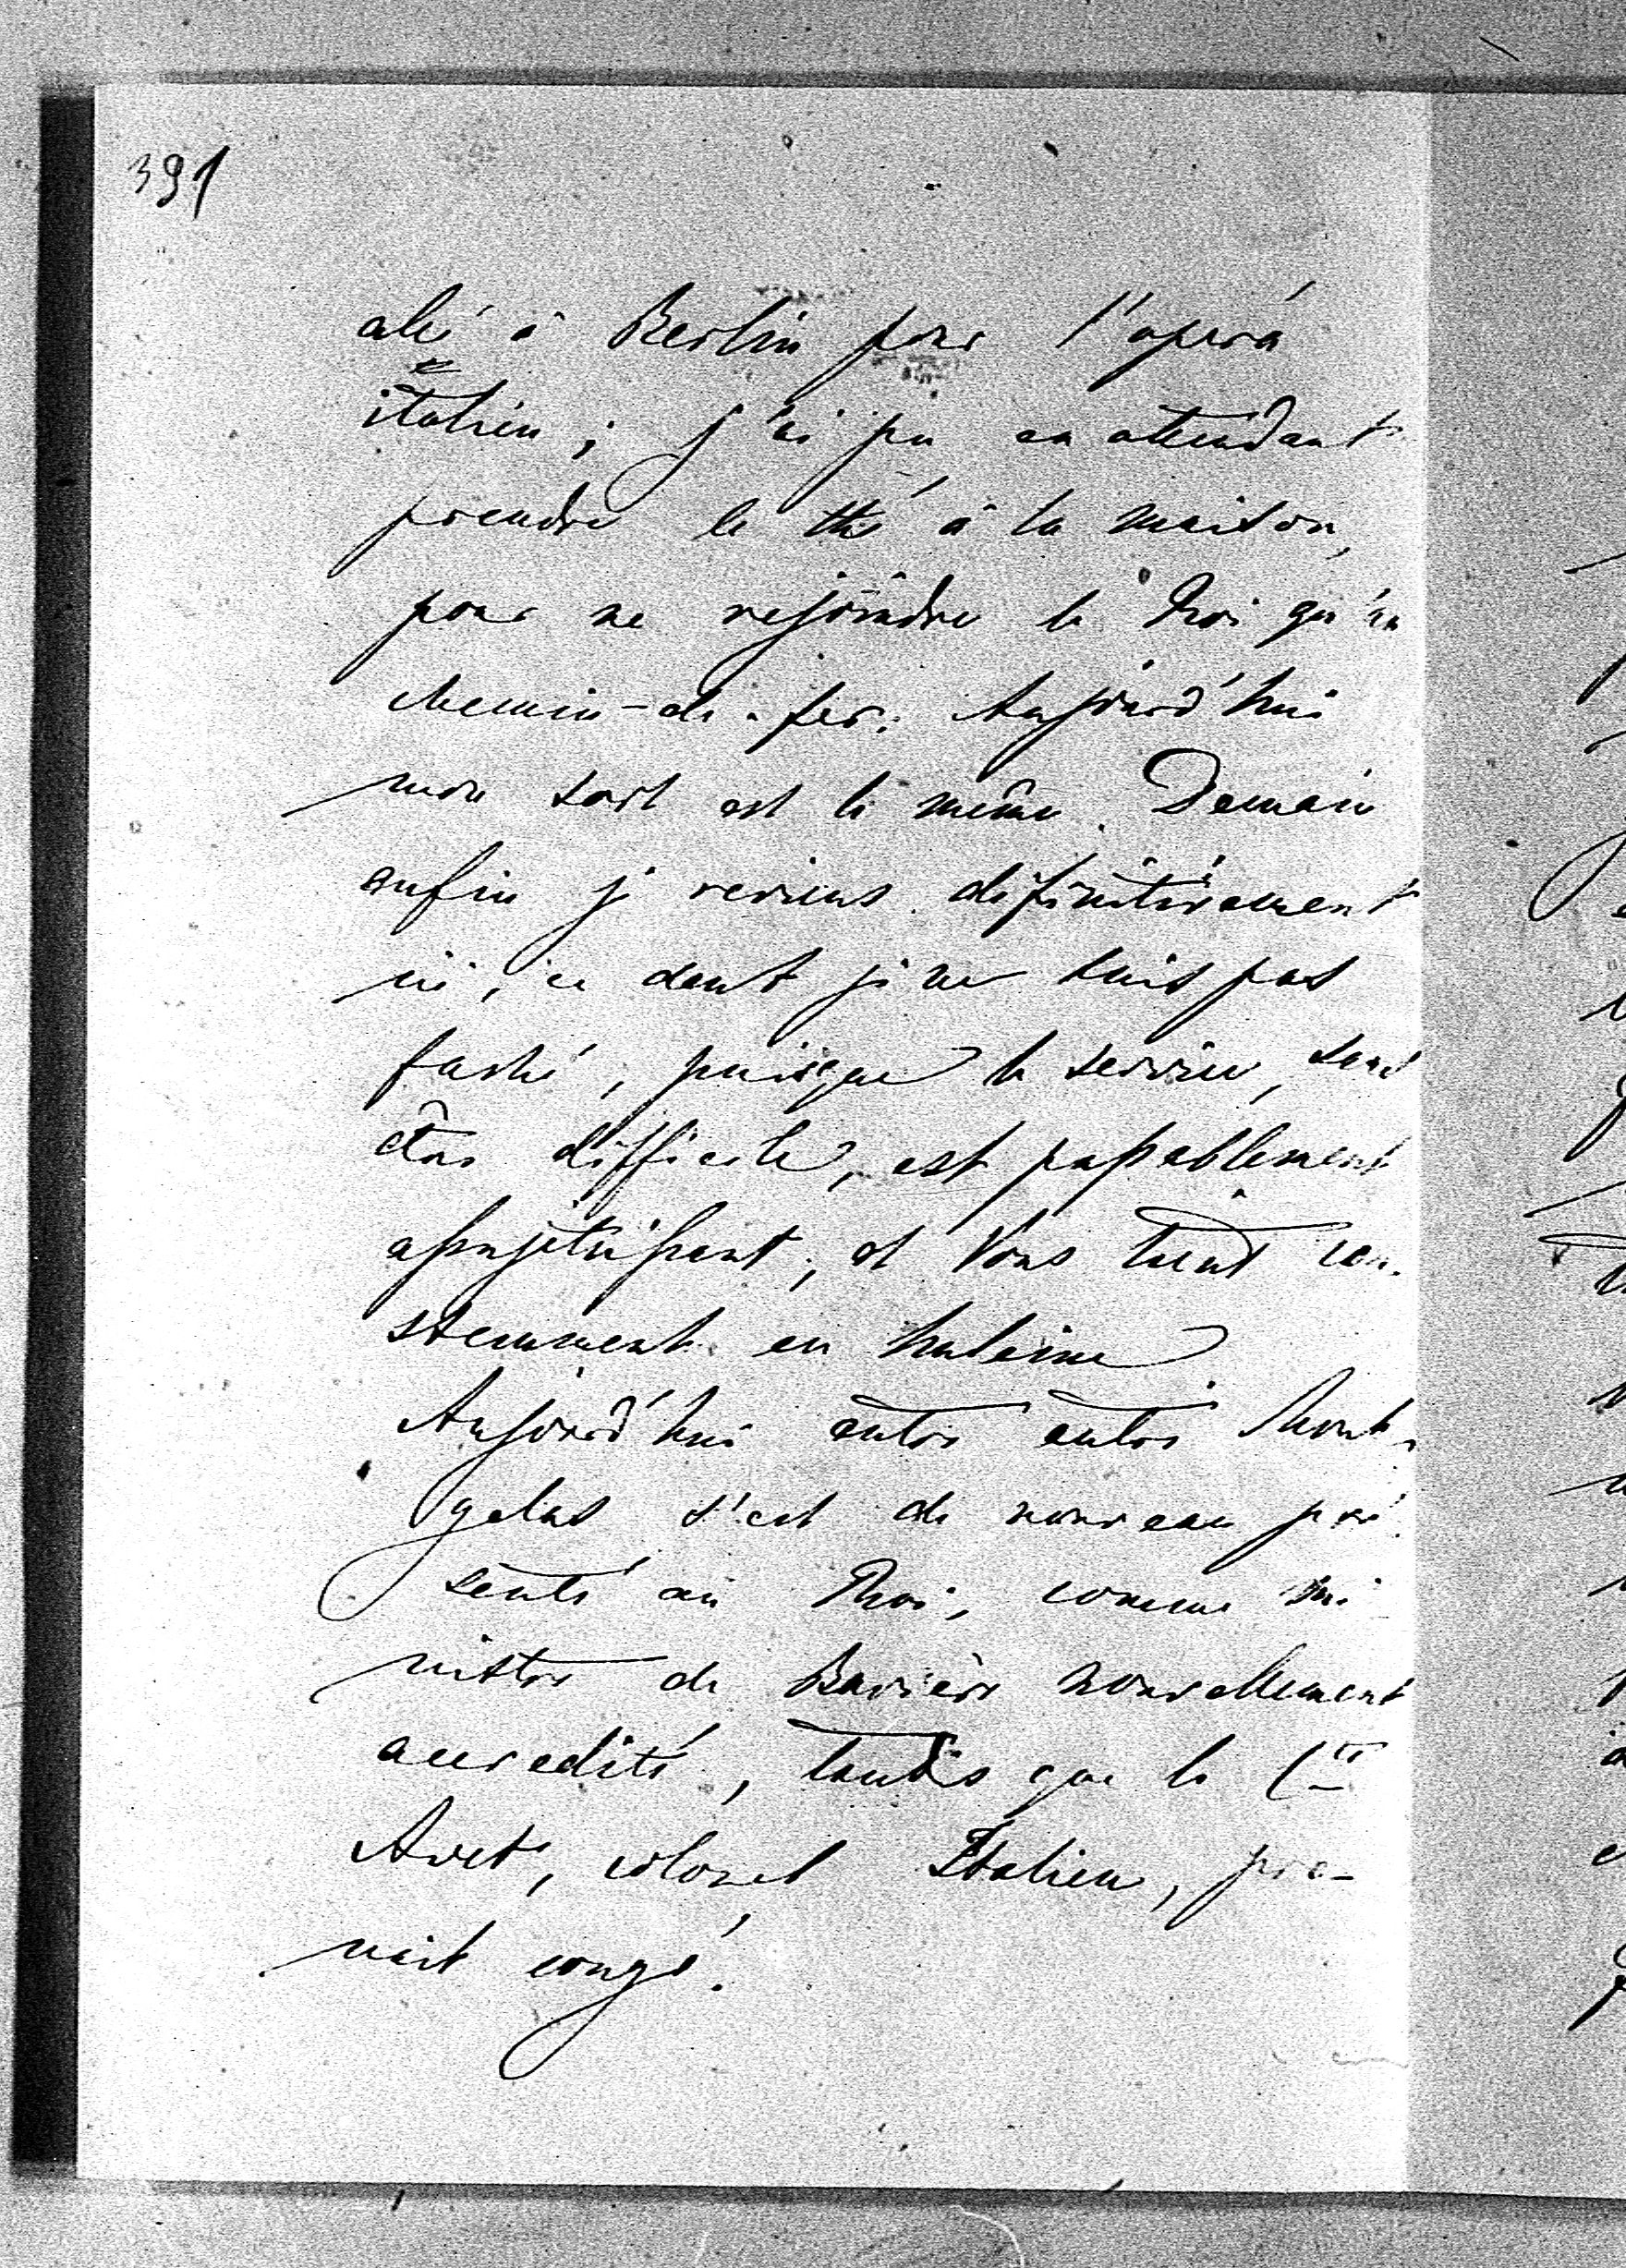 391
allé à Berlin pour l'opéra
italien; j'ai pu en attendant
prendre le thé à la maison,
pour ne rejoindre le Roi qu'en
chemin-de-fer. Aujourd'hui
mon sort est le même. Demain
enfin je reviens définitivement
ici, ce dont je ne suis pas
faché, puisque le service, sans
être difficile, est papablement
assujetissant, et Vous tient con-
stemment en haleine
Aujourd'hui entre autre Mont-
gelas s'est de nouveau pré-
senté au Roi, comme mi
nistre de Bavière nouvellement
accredité, tandis que le Cte
Avet, colonel Italien, pre-
nait congé.